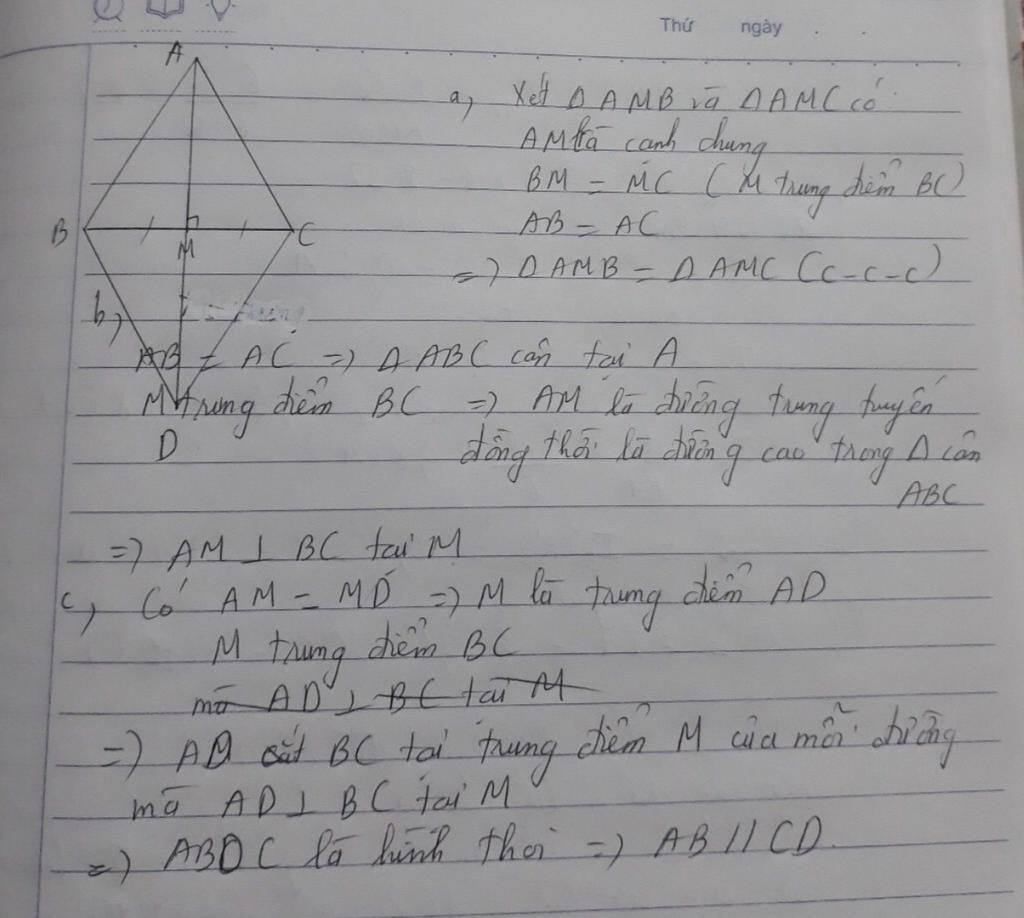 Thứ ngày . .
A
B
C
M
D
a, Xét Δ AMB và Δ AMC có
AM là cạnh chung
BM = MC (M trung điểm BC)
AB = AC
=) Δ AMB = Δ AMC (C-C-C)
b,
AB = AC =) Δ ABC cân tại A
M trung điểm BC =) AM là đường trung tuyến
đồng thời là đường cao trong Δ cân
ABC
=) AM ⊥ BC tại M
c, Có AM = MD =) M là trung điểm AD
M trung điểm BC
mà AD ⊥ BC tại M
=) AD cắt BC tại trung điểm M của mỗi đường
mà AD ⊥ BC tại M
=) ABDC là hình thoi =) AB // CD.